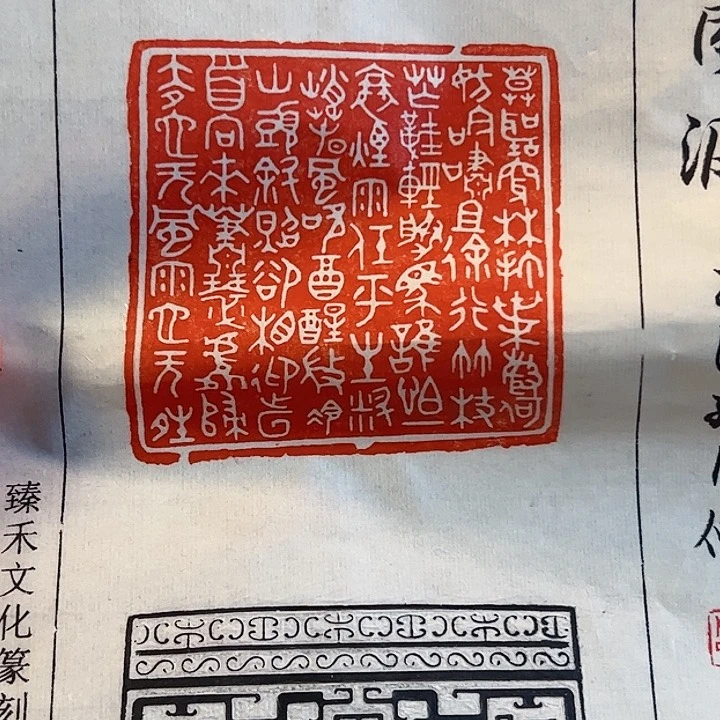 莫聽穿林打葉聲何
妨吟嘯且徐行竹杖
芒鞋輕勝馬誰怕一
蓑煙雨任平生料
峭春風吹酒醒微冷
山頭斜照卻相迎回
首向來蕭瑟處歸
去也无風雨也无晴
臻禾文化篆刻